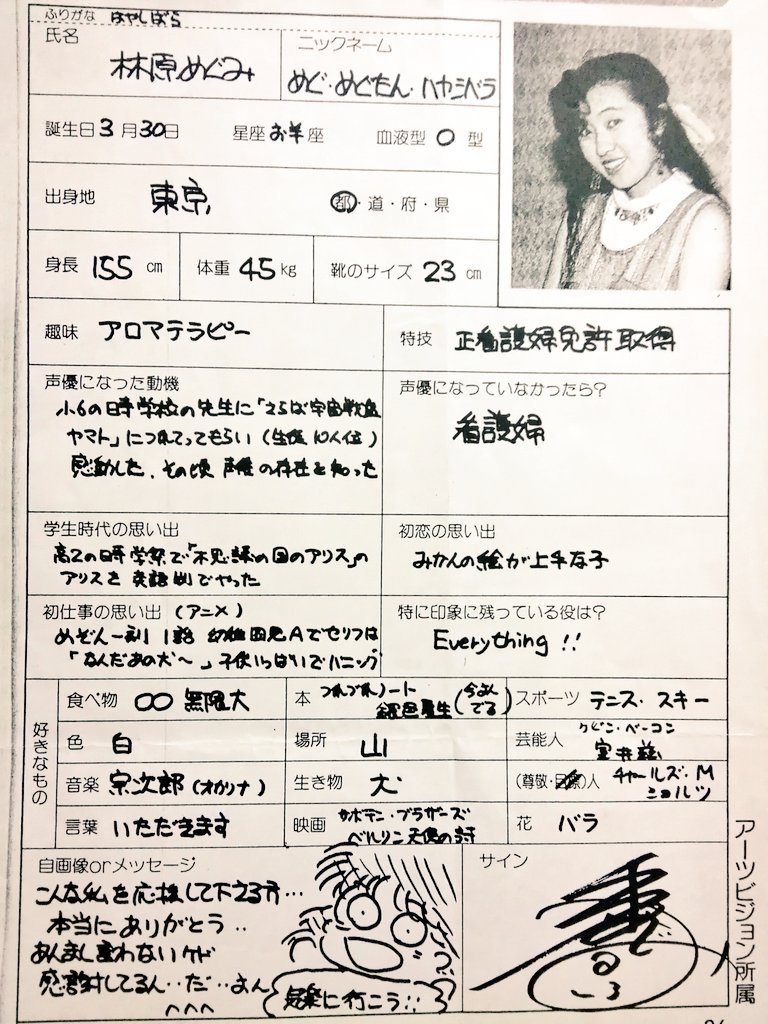 ふりがな はやしばら
氏名 林原めぐみ
ニックネーム
めぐ・めぐたん・ハヤシバラ
誕生日 3月30日 星座 お羊座 血液型 O 型
出身地 東京 都・道・府・県
身長 155 cm 体重 45 kg 靴のサイズ 23 cm
趣味 アロマテラピー
特技 正看護婦免許取得
声優になった動機
小6の時学校の先生に「さらば宇宙戦艦
ヤマト」につれてってもらい(生徒10人位)
感動した、その頃 声優の存在を知った
声優になっていなかったら?
看護婦
学生時代の思い出
高2の時学祭で「不思議の国のアリス」の
アリスを英語劇でやった
初恋の思い出
みかんの絵が上手な子
初仕事の思い出(アニメ)
めぞん一刻 1話 幼稚園児Aでセリフは
「なんだあの犬〜」子供いっぱいでハニング
特に印象に残っている役は?
Everything !!
好きなもの
食べ物 ∞ 無限大
本 つれづれノート
(今よんでる)
スポーツ テニス・スキー
色 白
場所 山
芸能人 ケビン・ベーコン
室井滋
音楽 宗次郎(オカリナ)
生き物 犬
(尊敬・目標)人 チャールズ・M
シュルツ
言葉 いただきます
映画 サボテン・ブラザーズ
ベルリン天使の詩
花 バラ
自画像orメッセージ
こんな私を応援して下さる方…
本当にありがとう‥
あんまし言わないケド
感謝してるん‥だ‥よん
に行こう!!
サイン
アーツビジョン所属